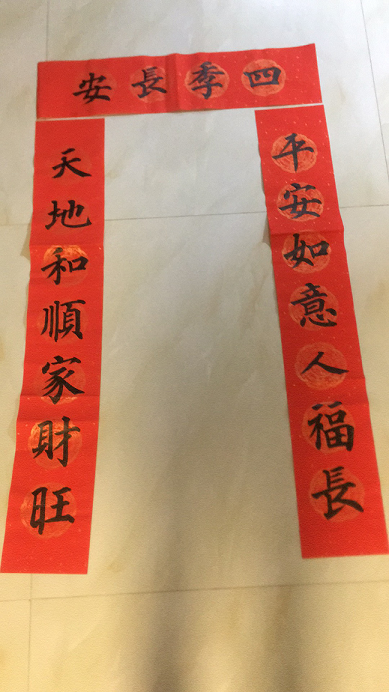 四季長安
平安如意人福長
天地和順家財旺